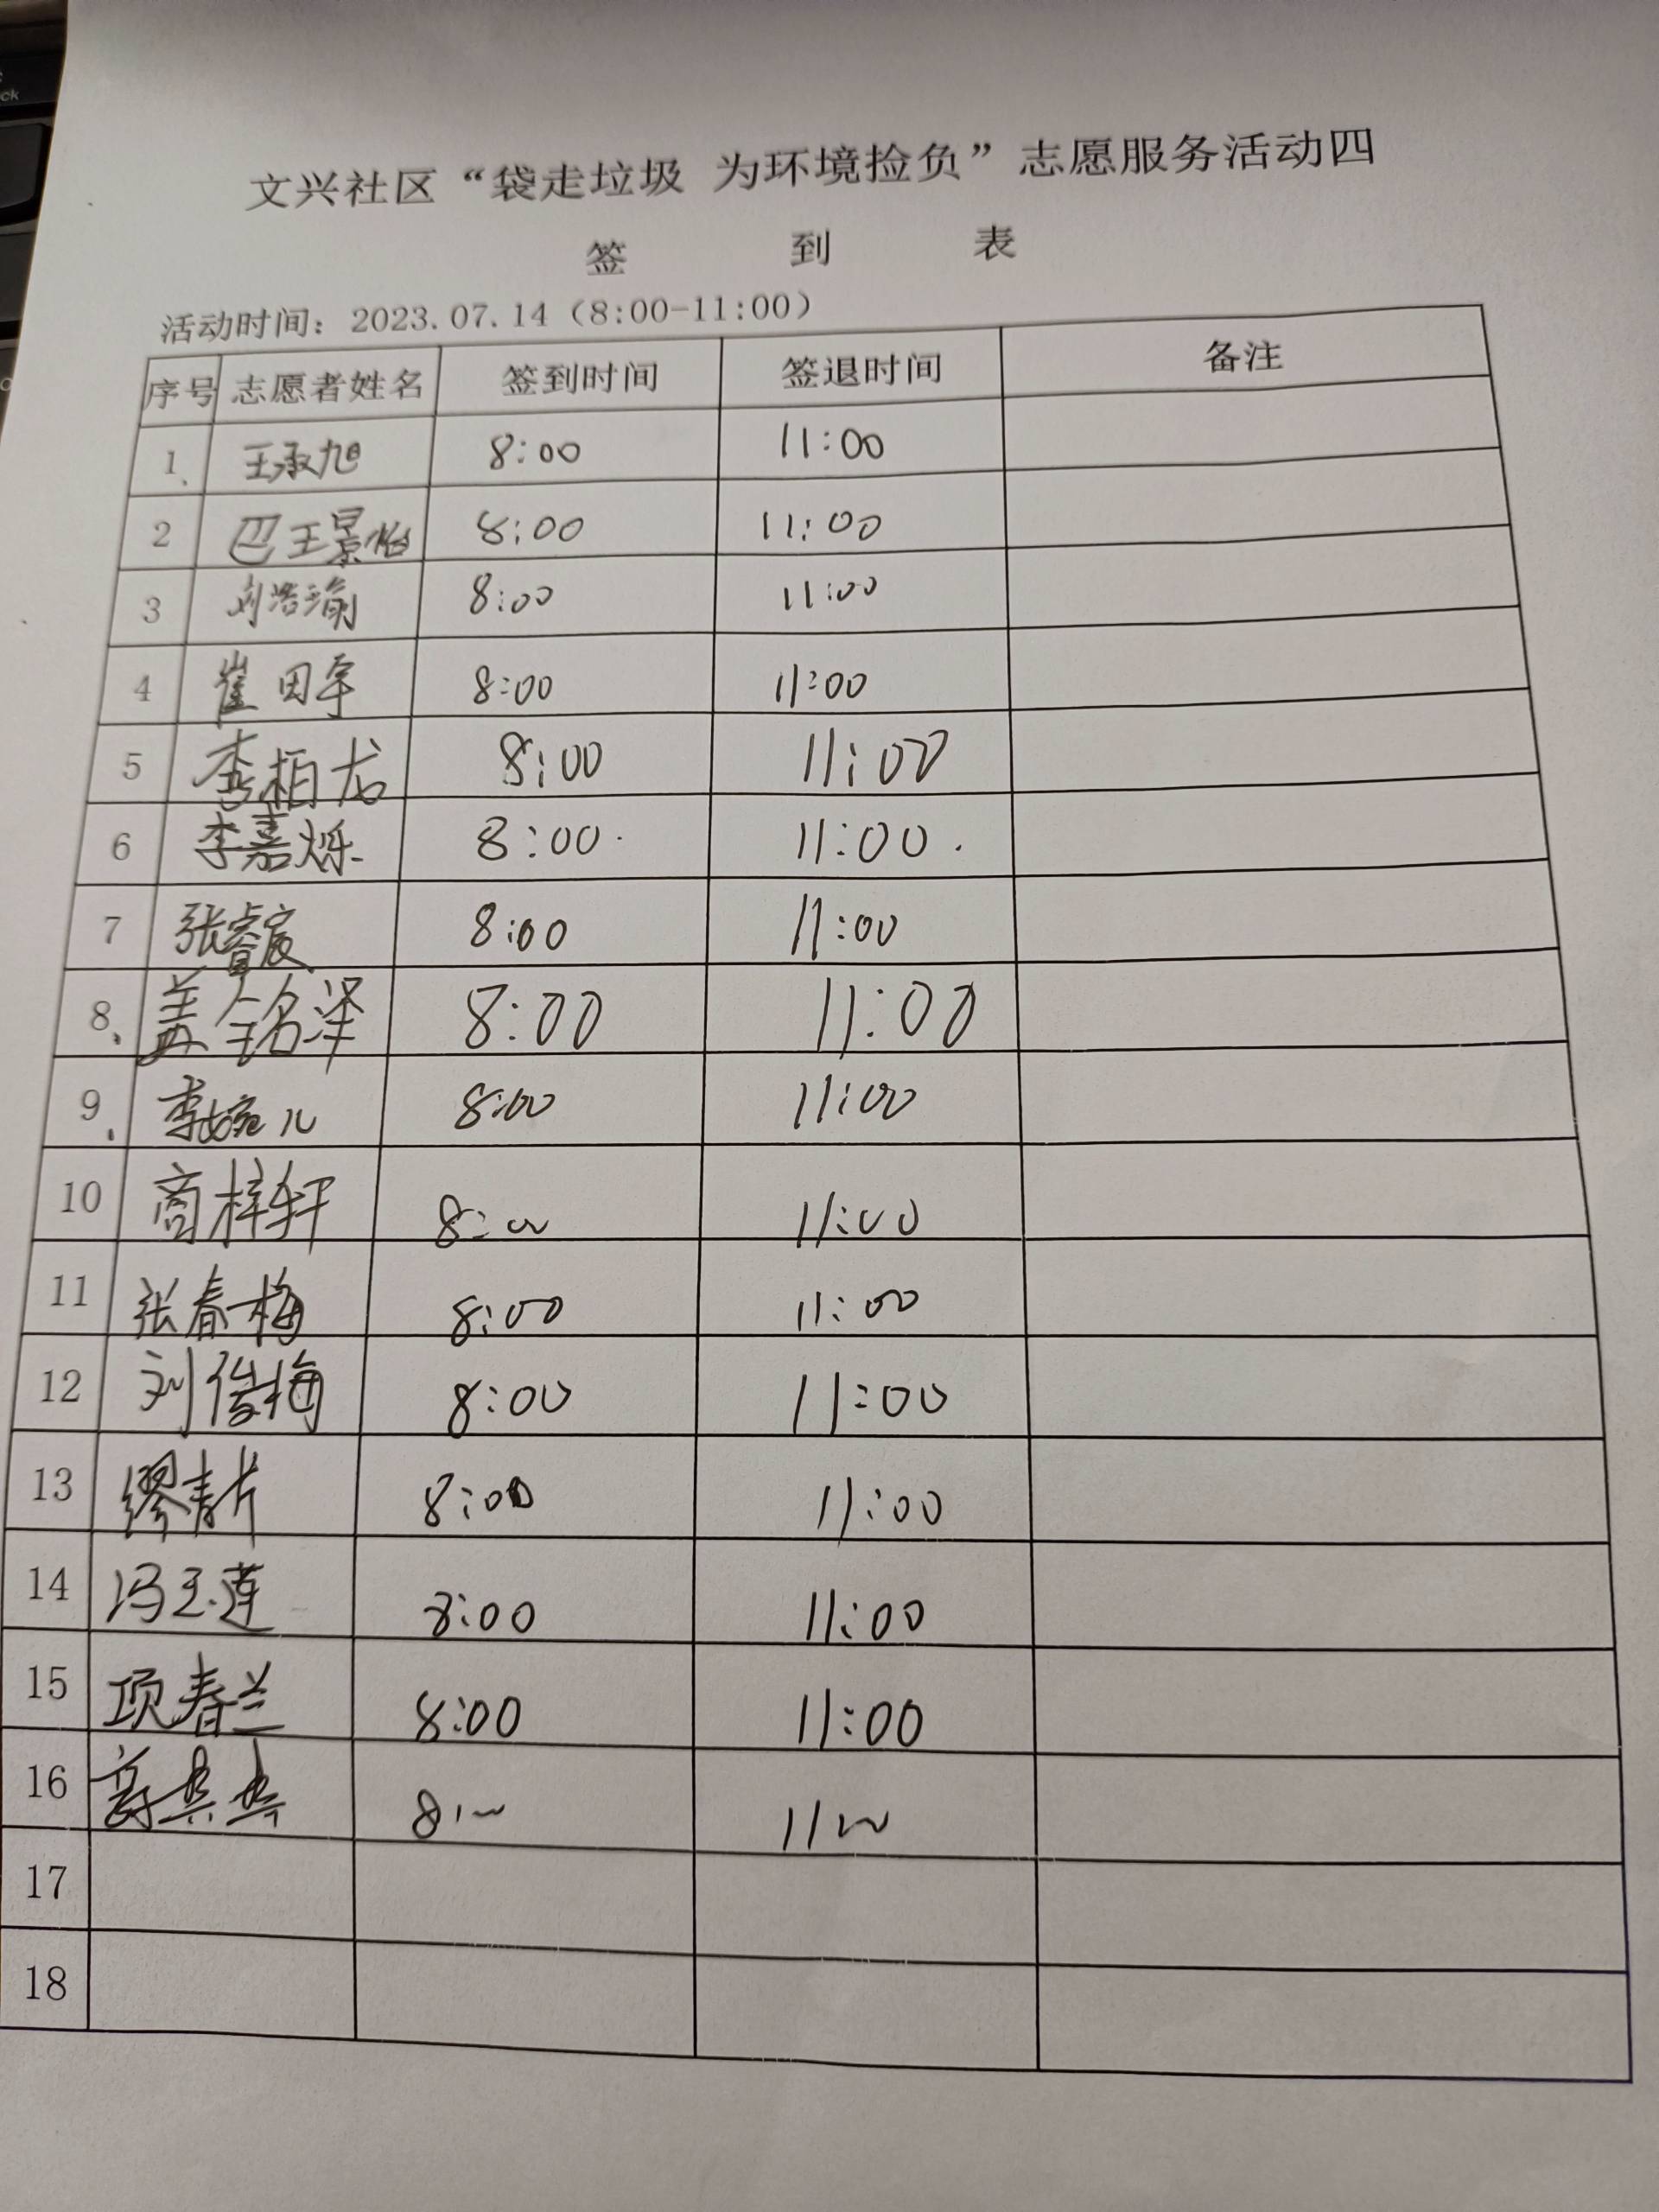 文兴社区“袋走垃圾 为环境捡负”志愿服务活动四
签 到 表
活动时间：2023.07.14（8:00-11:00）
序号 志愿者姓名 签到时间 签退时间 备注
1 王承旭 8:00 11:00
2 巴王景怡 8:00 11:00
3 刘浩瑜 8:00 11:00
4 崔田宇 8:00 11:00
5 李柏龙 8:00 11:00
6 李嘉烁 8:00 11:00
7 张睿宸 8:00 11:00
8 盖铭泽 8:00 11:00
9 李婉儿 8:00 11:00
10 商梓轩 8:00 11:00
11 张春梅 8:00 11:00
12 刘俊梅 8:00 11:00
13 缪 8:00 11:00
14 冯玉莲 8:00 11:00
15 项春兰 8:00 11:00
16 8:00 11:00
17
18